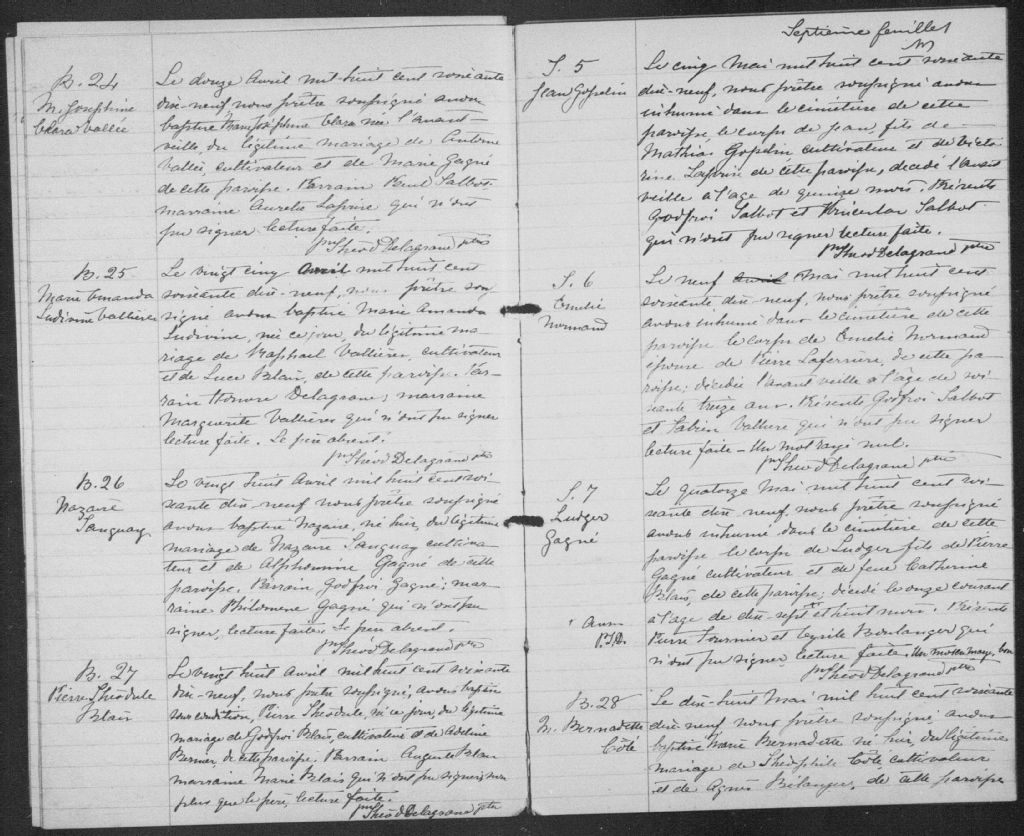 B. 24
M. Josephine
Clara Vallée
Le douze Avril mil huit cent soixante
dix-neuf, nous prêtre soussigné avons
baptisé Josephine Clara née l'avant
veille du légitime mariage de Antoine
Vallée cultivateur et de Marie Gagné
de cette paroisse. Parrain Paul Talbot
marraine Aurelie Laprise qui n'ont
pu signer lecture faite.
Théod Delagrave ptre
B. 25
Marie Amanda
Ludivine Vallières
Le vingt cinq Avril mil huit cent
soixante dix-neuf, nous prêtre sous
signé avons baptisé Marie Amanda
Ludivine, née ce jour, du légitime ma
riage de Raphael Vallières, cultivateur
et de Luce Blais, de cette paroisse. Par-
rain Honoré Delagrave; marraine
Marguerite Vallières qui n'ont pu signer
lecture faite. Le père absent.
Théod Delagrave ptre
B. 26
Nazaire
Tanguay
Le vingt huit Avril mil huit cent soi-
xante dix-neuf nous prêtre soussigné
avons baptisé Nazaire, né hier, du légitime
mariage de Nazaire Tanguay cultiva-
teur et de Alphonsine Gagné de cette
paroisse. Parrain Godfroi Gagné; mar-
raine Philomène Gagné qui n'ont pu
signer, lecture faite. Le père absent.
Théod Delagrave ptre
B. 27
Pierre Théodule
Blais
Le vingt huit Avril mil huit cent soixante
dix-neuf, nous prêtre soussigné, avons baptisé
sous condition, Pierre Théodule, né ce jour, du légitime
mariage de Godfroi Blais, cultivateur et de Adeline
Bernier, de cette paroisse. Parrain Auguste Blais
marraine Marie Blais qui n'ont pu signer, non
plus que le père, lecture faite.
Théod Delagrave ptre
Septième feuillet
S. 5
Jean Gosselin
Le cinq Mai mil huit cent soixante
dix-neuf, nous prêtre soussigné avons
inhumé dans le cimitière de cette
paroisse le corps de Jean, fils de
Mathias Gosselin cultivateur et de Victo
rine Laprise de cette paroisse, décédé l'avant
veille à l'age de quinze mois. Présents
Godfroi Talbot et Talbot
qui n'ont pu signer lecture faite.
Théod Delagrave ptre
S. 6
Emelie
Normand
Le neuf avril Mai mil huit cent
soixante dix-neuf, nous prêtre soussigné
avons inhumé dans le cimitière de cette
paroisse le corps de Emelie Normand
épouse de Pierre Laferrière, de cette pa-
roisse; décédée l'avant veille à l'âge de soi-
xante treize ans. Présents Godfroi Talbot
et Sabin Vallière qui n'ont pu signer
lecture faite - Un mot rayé nul.
Théod Delagrave ptre
S. 7
Ludger
Gagné
Le quatorze Mai mil huit cent soi-
xante dix-neuf nous prêtre soussigné
avons inhumé dans le cimitière de cette
paroisse le corps de Ludger fils de Pierre
Gagné cultivateur et de feue Catherine
Blais, de cette paroisse; décédé le onze courant
à l'age de dix-sept et huit mois. Présents
Pierre Fournier et Cyrile Boulanger qui
n'ont pu signer lecture faite. Un mot en marge bon
Théod Delagrave ptre
x ans
P.T.D.
B. 28
M. Bernadette
Côté
Le dix-huit Mai mil huit cent soixante
dix-neuf nous prêtre soussigné avons
baptisé Marie Bernadette né hier, du légitime
mariage de Théophile Côté cultivateur
et de Agnès Bélanger, de cette paroisse